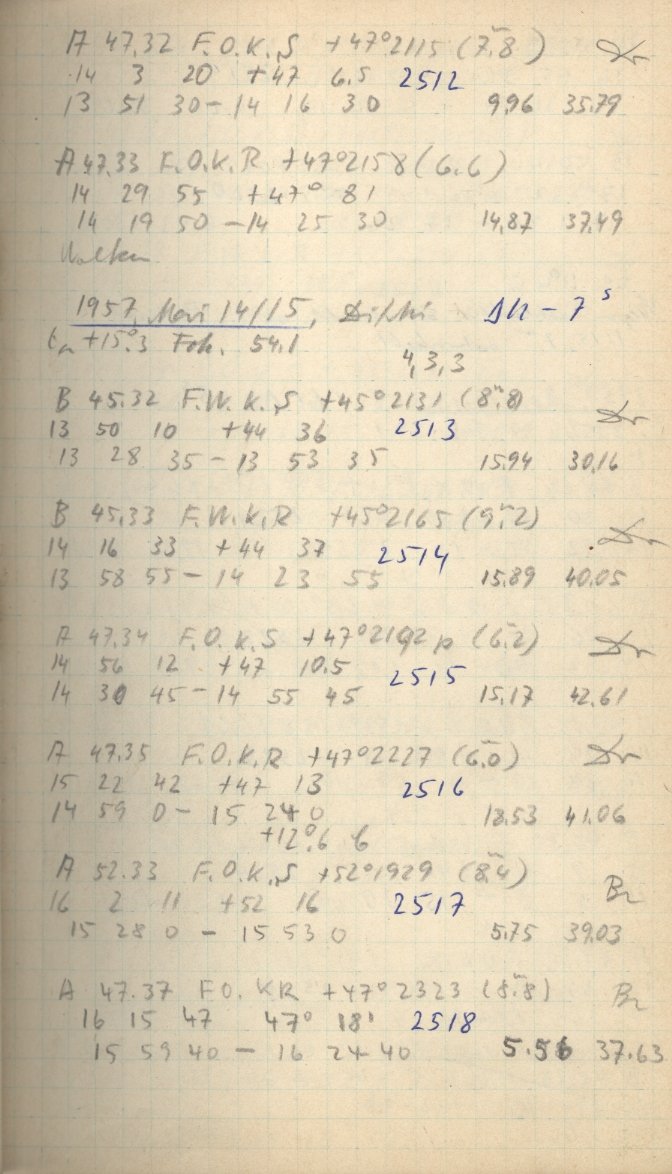 A 47.32 F.O.K.S +47°2115 (7.ᵐ8) Dr
14 3 20 +47 6.5 2512
13 51 30 – 14 16 30 9,96 35.79
A 47.33 F.O.K.R +47°2158 (6.6)
14 29 55 +47° 81
14 19 50 – 14 25 30 14,87 37.49
Wolken
1957, Mai 14/15, Δu – 7ˢ
+15°.3 Fok. 54.1
4,3,3
B 45.32 F.W.K.S +45°2131 (8.ᵐ8) Dr
13 50 10 +44 36 2513
13 28 35 – 13 53 35 15.94 30,16
B 45.33 F.W.K.R +45°2165 (9.ᵐ2) Dr
14 16 33 +44 37 2514
13 58 55 – 14 23 55 15.89 40.05
A 47.34 F.O.K.S +47°2192 p (6.ᵐ2) Dr
14 56 12 +47 10.5 2515
14 30 45 – 14 55 45 15.17 42.61
A 47.35 F.O.K.R +47°2227 (6.ᵐ0) Dr
15 22 42 +47 13 2516
14 59 0 – 15 24 0 12.53 41.06
+12°.6 b
A 52.33 F.O.K.S +52°1929 (8.ᵐ4) Br
16 2 11 +52 16 2517
15 28 0 – 15 53 0 5.75 39.03
A 47.37 F.O. KR +47°2323 (8.ᵐ8) Br
16 15 47 47° 18' 2518
15 59 40 – 16 24 40 5.56 37.63